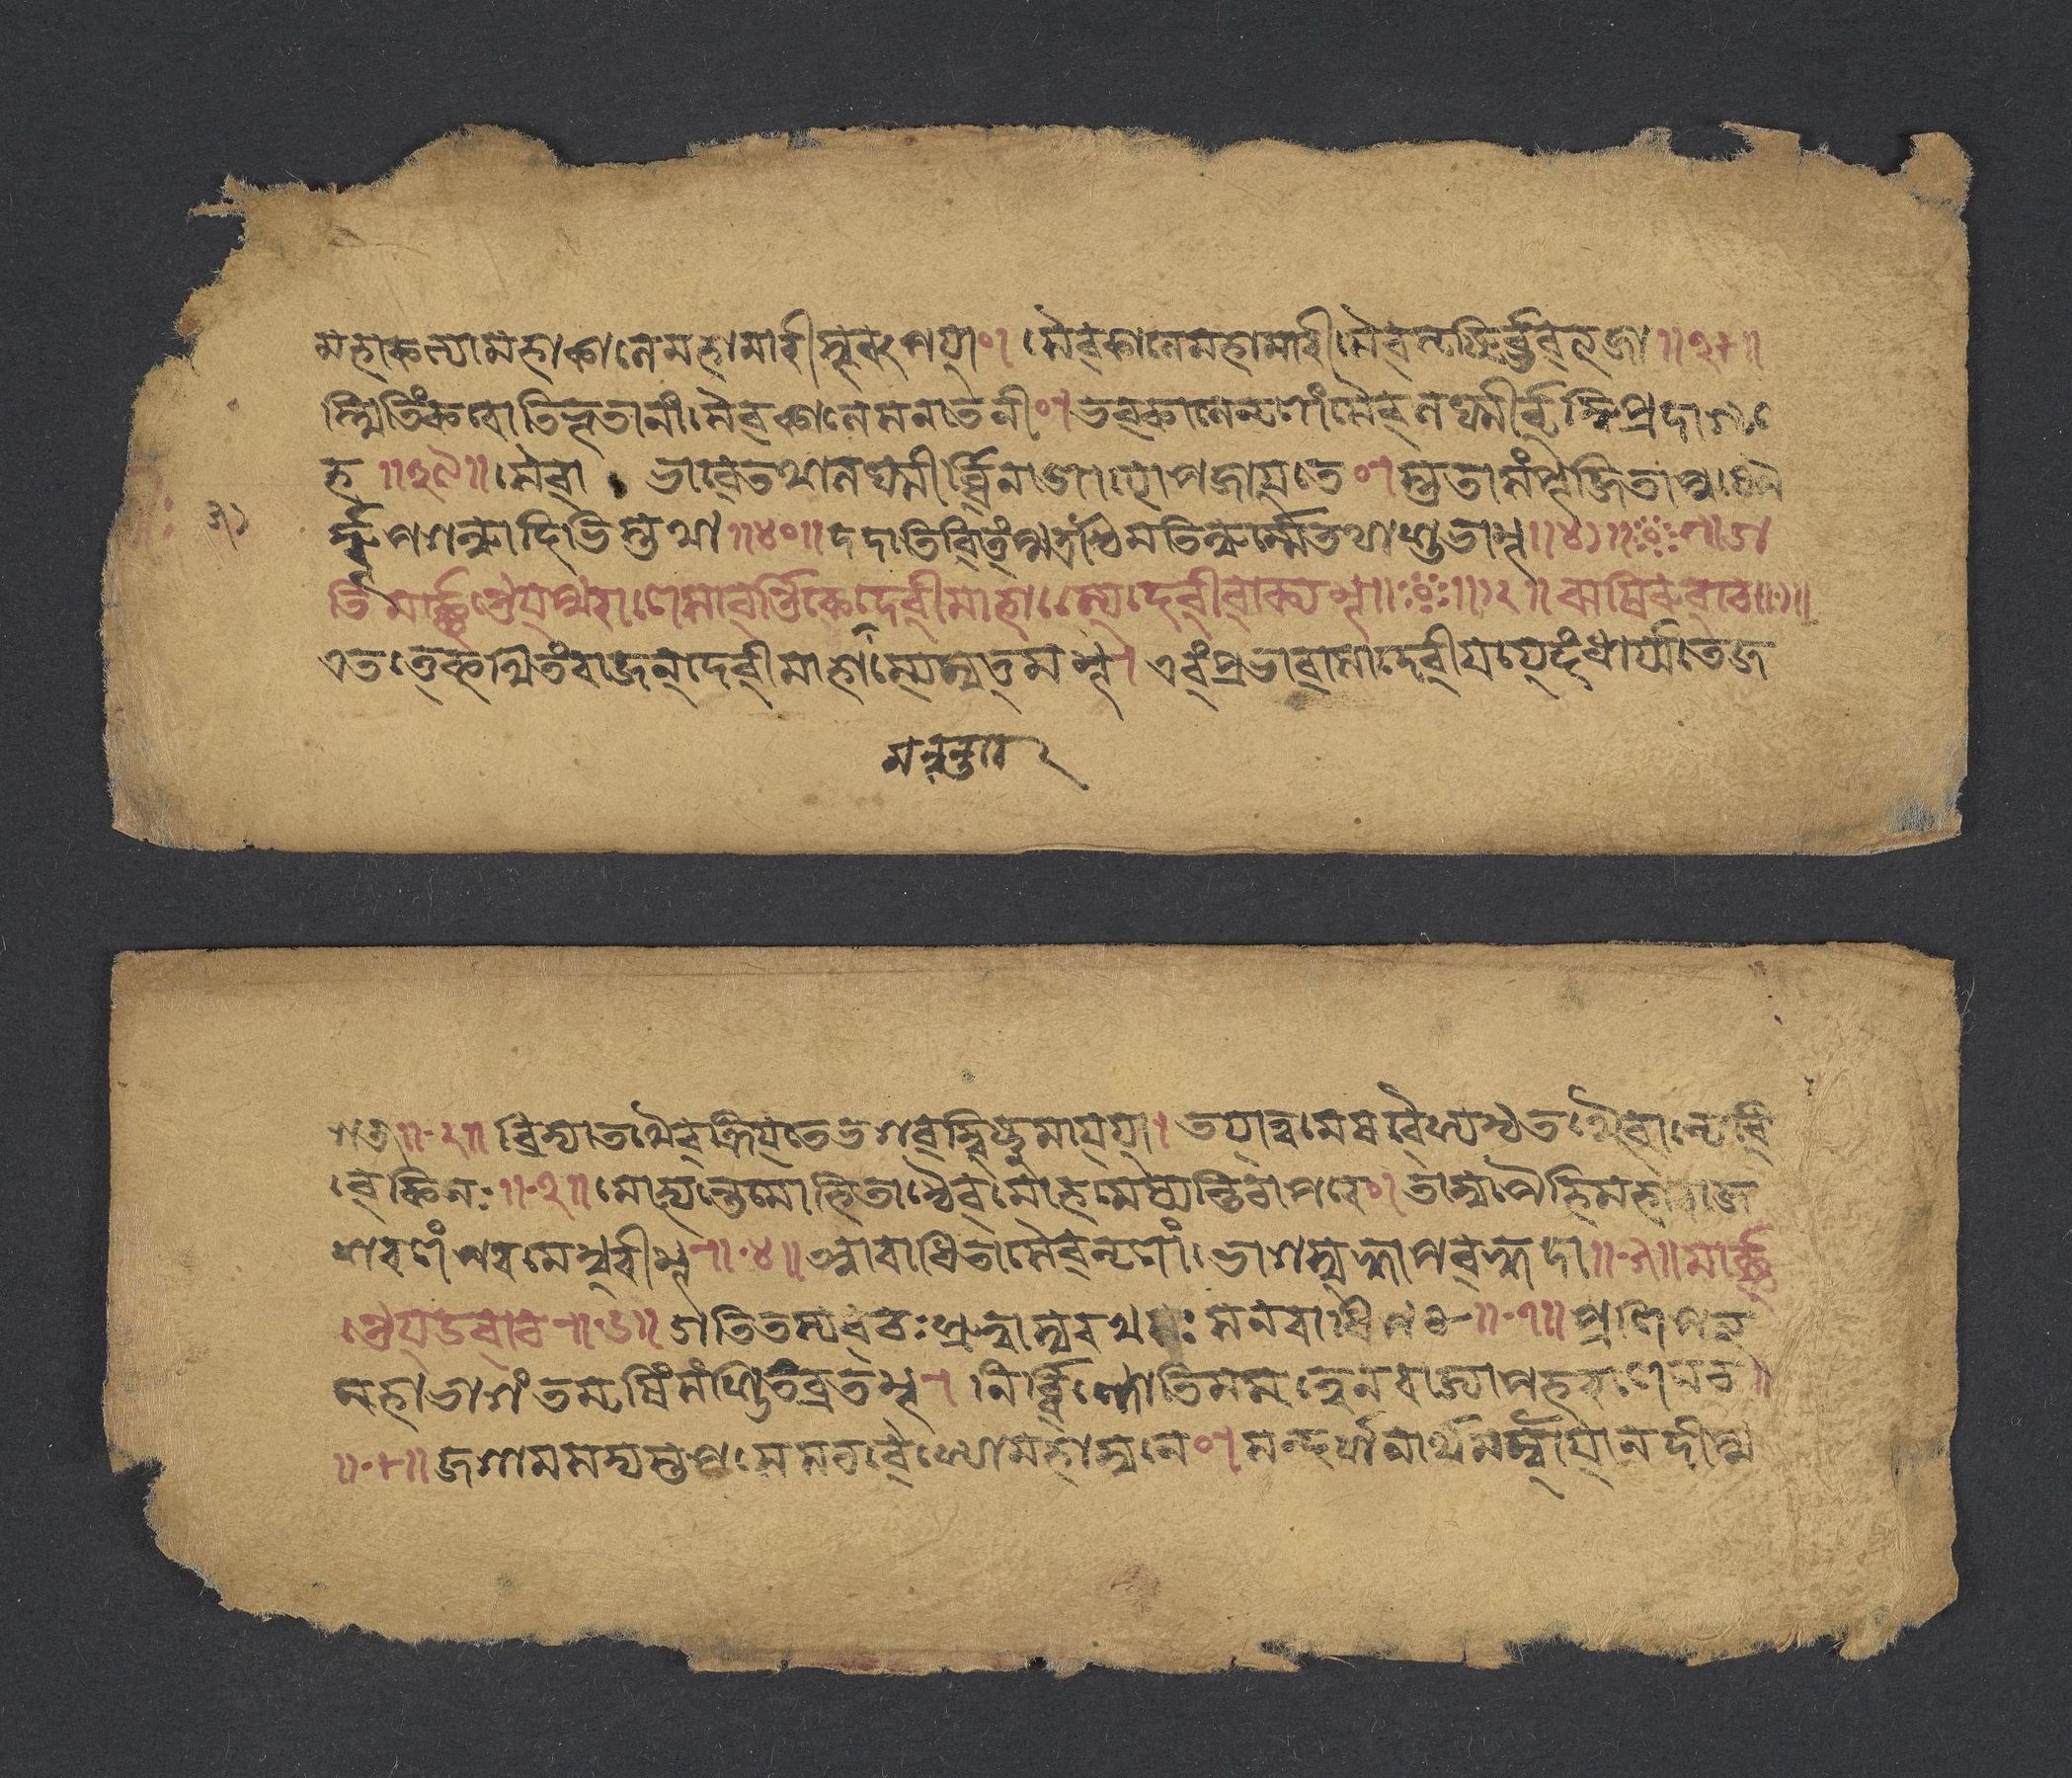 মহাকাল্যা মহাকালে মহামারীস্বরূপয়া । সৈব কালে মহামারী সৈব সৃষ্টির্ভবত্যজা ॥৩৮॥
স্থিতিং করোতি ভূতানাং সৈব কালে সনাতনী । ভবকালে নৃণাং সৈব লক্ষ্মীর্বৃদ্ধিপ্রদা গৃহে
হ ॥৩৯॥ সৈবাভাবে তথালক্ষ্মীর্ব্বিনাশায়োপজায়তে । স্তুতা সংপূজিতা পুষ্পৈ
র্দ্ধূপগন্ধাদিভিস্তথা ॥৪০॥ দদাতি বিত্তং পুত্রাংশ্চ মতিন্ধর্ম্মে তথা শুভাম্ ॥৪১॥ ই
তি মার্কণ্ডেয়পুরাণে সাবর্ণিকে দেবীমাহাত্ম্যে দেবীবাক্যম্ ॥১২॥ ঋষিরুবাচ ॥১॥
এতত্তে কথিতং রাজন্ দেবীমাহাত্ম্যমুত্তমম্ । এবং প্রভাবা সা দেবী যয়েদং ধার্য্যতে জ
গত্ ॥২॥ বিদ্যা তথৈব ক্রিয়তে ভগবদ্বিষ্ণুমায়য়া । তয়া ত্বমেষ বৈশ্যশ্চ তথৈবান্যে বি
বেকিনঃ ॥৩॥ মোহ্যন্তে মোহিতাশ্চৈব মোহমেষ্যন্তি চাপরে । তামুপৈহি মহারাজ
শরণং পরমেশ্বরীম্ ॥৪॥ আরাধিতা সৈব নৃণাং ভোগস্বর্গাপবর্গদা ॥৫॥ মার্ক
ণ্ডেয় উবাচ ॥৬॥ ইতি তস্য বচঃ শ্রুত্বা সুরথঃ স নরাধিপঃ ॥৭॥ প্রণিপত্য
মহাভাগং তমৃষিং সংশিতব্রতম্ । নির্ব্বিণ্ণোতিমমত্বেন রাজ্যাপহরণেন চ
॥৮॥ জগাম সদ্যস্তপসে স চ বৈশ্যো মহামুনে । সন্দর্শনার্থমম্বায়া নদীপু